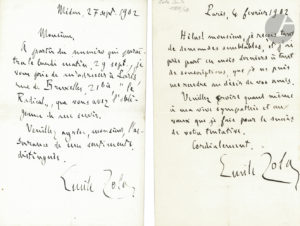 Médan, 27 sept. 1902
Monsieur,
A partir du numéro qui paraî-
tra lundi matin, 29 sept., je
vous prie de m'adresser à Paris
rue de Bruxelles, 21 bis, "le
Radical", que vous avez l'obli-
geance de me servir.
Veuillez agréer, monsieur, l'as-
surance de mes sentiments
distingués.
Emile Zola
Paris, 4 février 1902
Hélas! monsieur, je reçois tant
de demandes semblables, et j'ai
pris part ces mois derniers à tant
de souscriptions, que je ne puis
me rendre au désir de vos amis.
Veuillez croire quand même
à ma vive sympathie et aux
vœux que je fais pour le succès
de votre tentative.
Cordialement.
Emile Zola